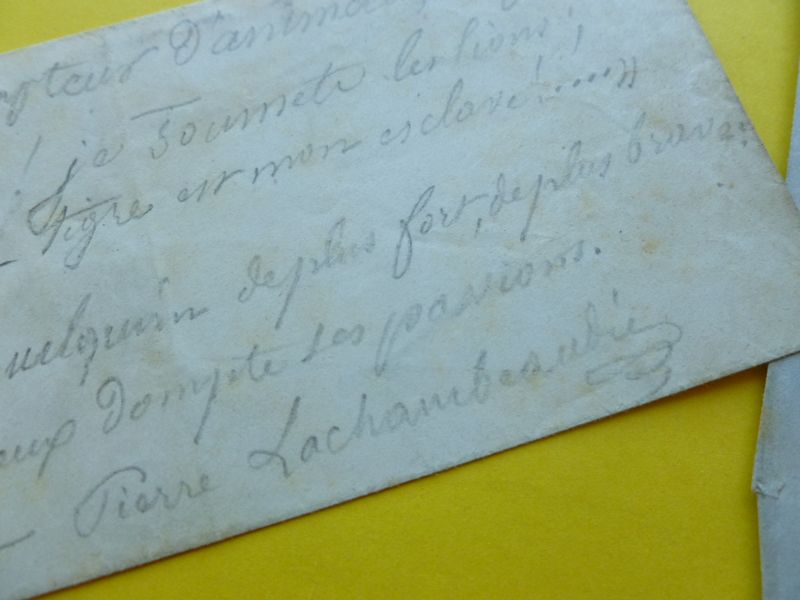 mpteur D'animaux
! je Soumets les lions;
- Tigre est mon esclave!....»
uelqu'un de plus fort, de plus brave:
eux dompte ses passions.
- Pierre Lachambeaudie